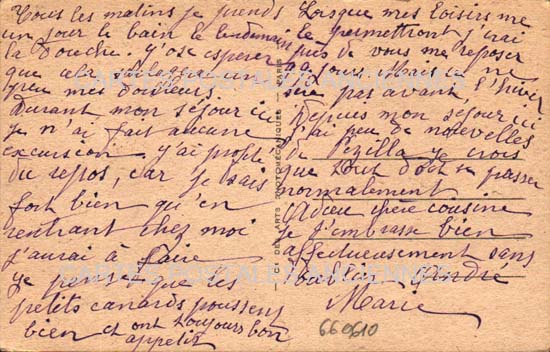 Tous les matins je prends
un jour le bain le lendemain
la douche. J'ose esperer
que
peu mes douleurs.
Durant mon séjour ici
je n'ai fait aucune
excursion. J'ai profité
du repos, car je sais
fort bien qu'en
rentrant chez moi
j'aurai à faire
je pense que les
petits canards poussent
bien et ont toujours bon
appetit
Lorsque mes loisirs me
le permettront j'irai
près de vous me reposer
jours. Mais ce ne
sera pas avant l'hiver
Depuis mon séjour ici
j'ai peu de nouvelles
de Pezilla je crois
que tout doit se passer
normalement
Adieu chère cousine
je t'embrasse bien
affectueusement sans
oublier
Marie
660610
DES ARTS PHOTOMÉCANIQUES
PARIS
CARTES POSTALES ANCIENNES
CARTES POSTALES ANCIENNES